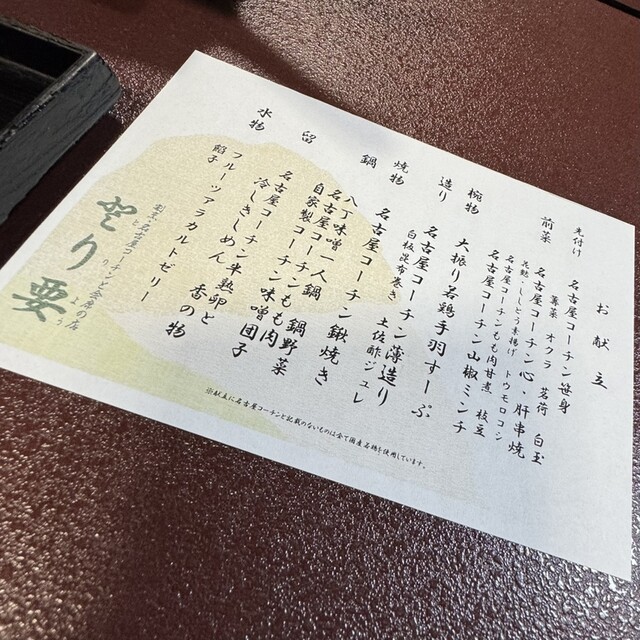 お献立
先付け
名古屋コーチン笹身
蓴菜 オクラ 茗荷 白玉
前菜
名古屋コーチン心・肝串焼
名古屋コーチンもも肉甘煮 枝豆
名古屋コーチン山椒ミンチ
椀物
大振り若鶏手羽すーぷ
造り
名古屋コーチン薄造り
白板昆布巻き 土佐酢ジュレ
焼物
名古屋コーチン鍬焼き
鍋
八丁味噌一人鍋 鍋野菜
名古屋コーチンもも肉
自家製コーチン味噌団子
留
名古屋コーチン半熟卵と
冷しきしめん 香の物
水物
フルーツアラカルトゼリー
※献立に名古屋コーチンと記載のないものは全て国産若鶏を使用しています。
とり要